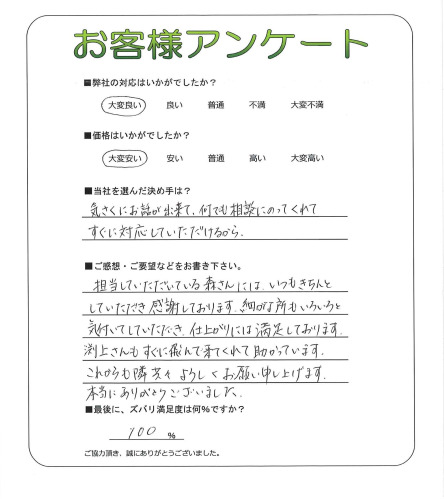 お客様アンケート
■弊社の対応はいかがでしたか？
大変良い 良い 普通 不満 大変不満
■価格はいかがでしたか？
大変安い 安い 普通 高い 大変高い
■当社を選んだ決め手は？
気さくにお話が出来て、何でも相談にのってくれて
すぐに対応していただけるから.
■ご感想・ご要望などをお書き下さい。
担当していただいている森さんには、いつもきちんと
していただき感謝しております. 細かな所もいろいろと
気付いてしていただき、仕上がりには満足しております.
渕上さんもすぐに飛んで来てくれて助かっています.
これからも隣共々よろしくお願い申し上げます.
本当にありがとうございました、
■最後に、ズバリ満足度は何％ですか？
100 %
ご協力頂き、誠にありがとうございました。